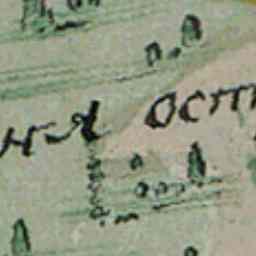 ня ост